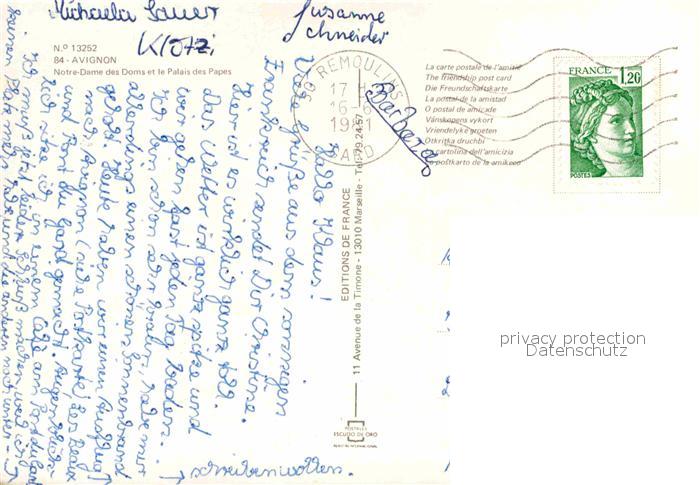 Michaela Sauer
Klotzi
Susanne
Schneider
Barbara
N.º 13252
84 - AVIGNON
Notre-Dame des Doms et le Palais des Papes
30 REMOULINS
17 H
16-6
1981
GARD
La carte postale de l'amitié
The friendship post card
Die Freundschaftskarte
La postal de la amistad
O postal de amizade
Vänskapens vykort
Vriendelyke groeten
Otkritka druchbi
La cartolina dell'amicizia
La postkarto de la amikeco
FRANCE
1,20
POSTES
Hallo Klaus!
Viele Grüße aus dem sonnigen
Frankreich sendet Dir Christine.
Hier ist es wirklich ganz toll.
Das Wetter ist ganz spitze und
wir gehen fast jeden Tag baden.
Ich bin schon ganz braun, habe mir
allerdings einen schönen Sonnenbrand
geholt. Heute haben wir einen Ausflug
nach Avignon (siehe Postkarte), Les Beaux
und Pont du Gard gemacht. Augenblick-
lich sitze ich in einem Café am Pont du Gard
Ich muß jetzt leider Schluß machen weil ich
keinen Platz mehr habe und die anderen noch unter-
schreiben wollen.
EDITIONS DE FRANCE
11 Avenue de la Timone - 13010 Marseille - Tel: 79.24.57
POSTALES
ESCUDO DE ORO
privacy protection
Datenschutz